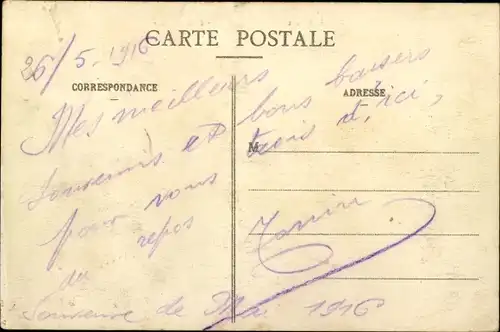 26/5-1916
CARTE POSTALE
CORRESPONDANCE
ADRESSE
Mes meilleurs
Souvenirs et bons baisers
pour vous d'ici,
M
repos
du
Souvenir de 1916